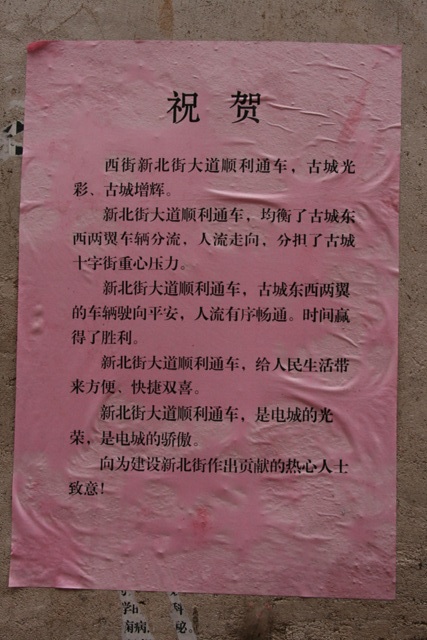 祝贺
西街新北街大道顺利通车，古城光
彩、古城增辉。
新北街大道顺利通车，均衡了古城东
西两翼车辆分流，人流走向，分担了古城
十字街重心压力。
新北街大道顺利通车，古城东西两翼
的车辆驶向平安，人流有序畅通。时间赢
得了胜利。
新北街大道顺利通车，给人民生活带
来方便、快捷双喜。
新北街大道顺利通车，是电城的光
荣，是电城的骄傲。
向为建设新北街作出贡献的热心人士
致意！
学
南病
秘。